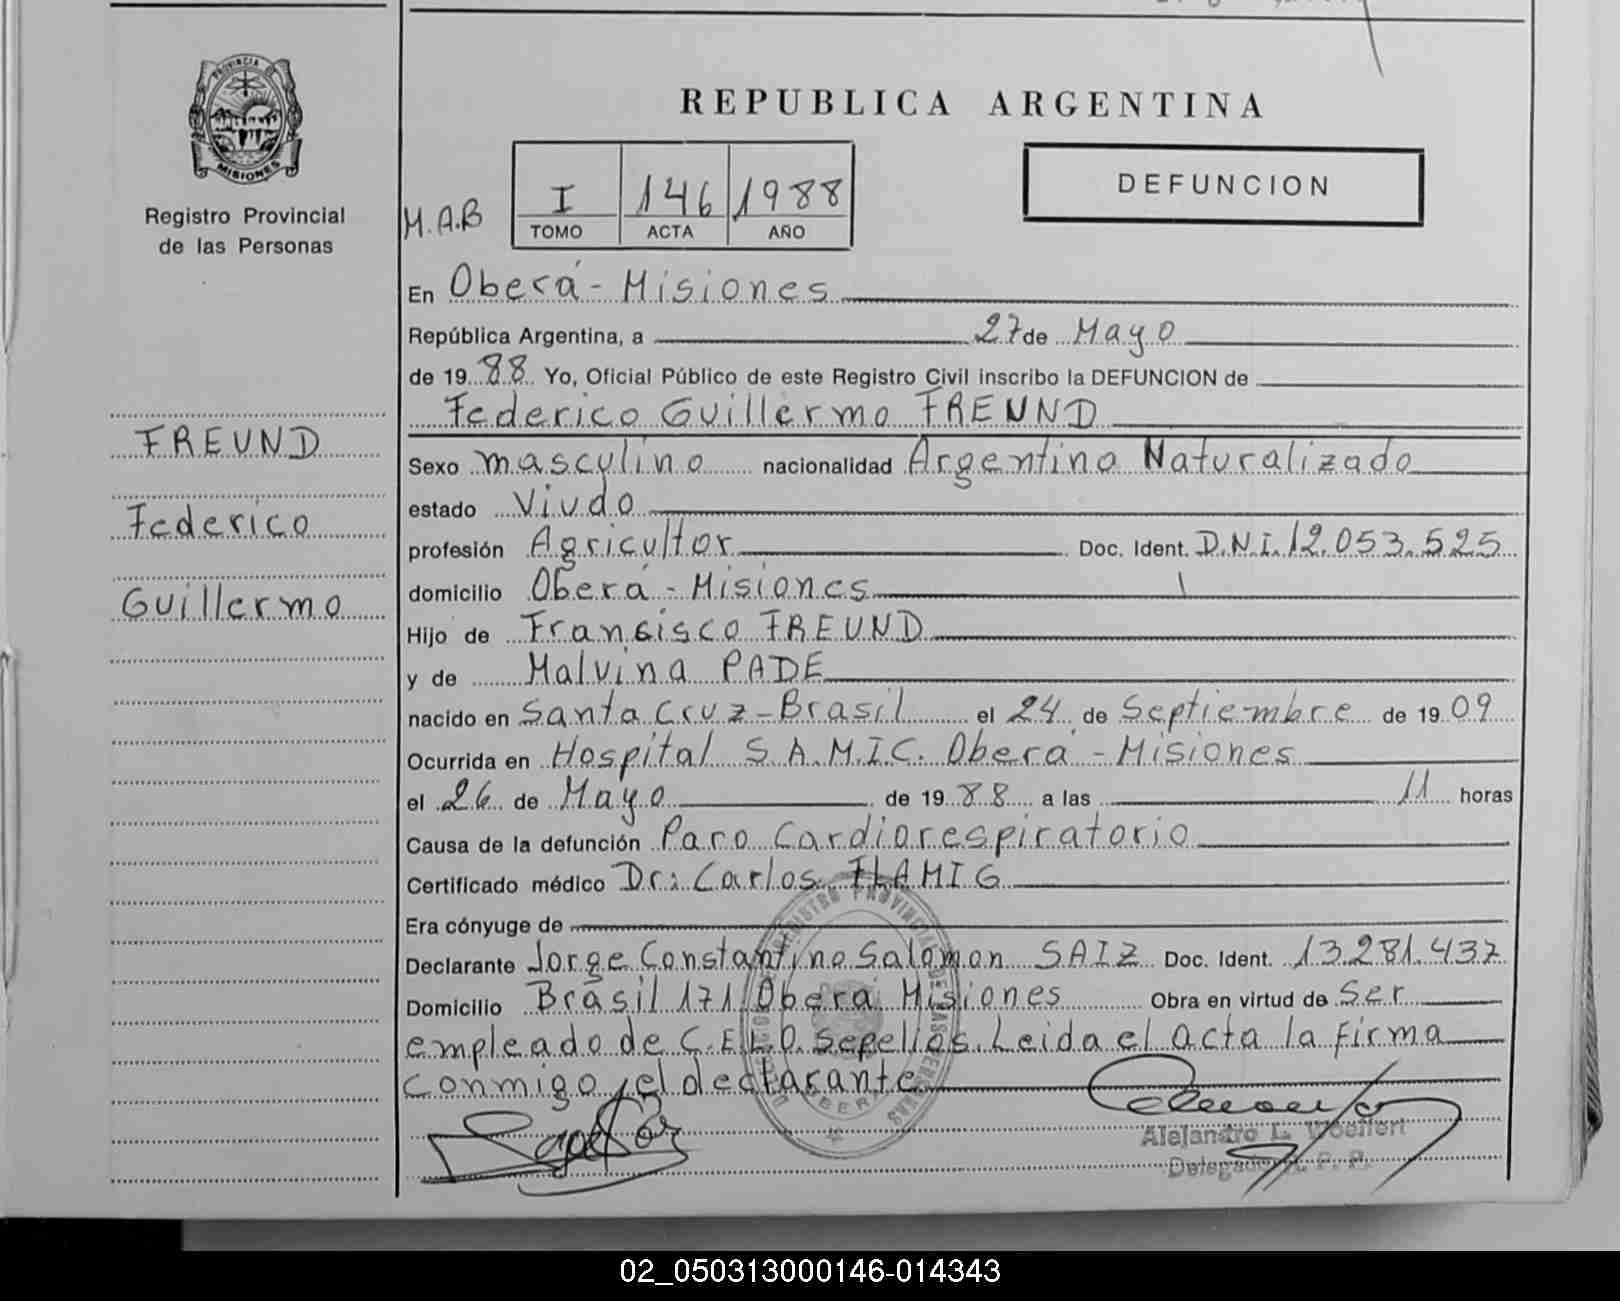 PROVINCIA DE
MISIONES
Registro Provincial
de las Personas
FREUND
Federico
Guillermo
REPUBLICA ARGENTINA
M.A.B
I 146 1988
TOMO ACTA AÑO
DEFUNCION
En Oberá - Misiones
República Argentina, a 27 de Mayo
de 19 88 Yo, Oficial Público de este Registro Civil inscribo la DEFUNCION de
Federico Guillermo FREUND
Sexo masculino nacionalidad Argentino Naturalizado
estado Viudo
profesión Agricultor Doc. Ident. D.N.I. 12.053.525
domicilio Oberá - Misiones
Hijo de Fransisco FREUND
y de Malvina PADE
nacido en Santa Cruz - Brasil el 24 de Septiembre de 19 09
Ocurrida en Hospital S.A.M.I.C. Oberá - Misiones
el 26 de Mayo de 19 88 a las 11 horas
Causa de la defunción Paro Cardiorespiratorio
Certificado médico Dr: Carlos FLAMIG
Era cónyuge de
Declarante Jorge Constantino Salomon SAIZ Doc. Ident. 13.281.437
Domicilio Brasil 171 Oberá Misiones Obra en virtud de Ser
empleado de C.E.L.O. Sepelios. Leida el acta la firma
conmigo, el declarante
Alejandro L. Woeffert
02_050313000146-014343